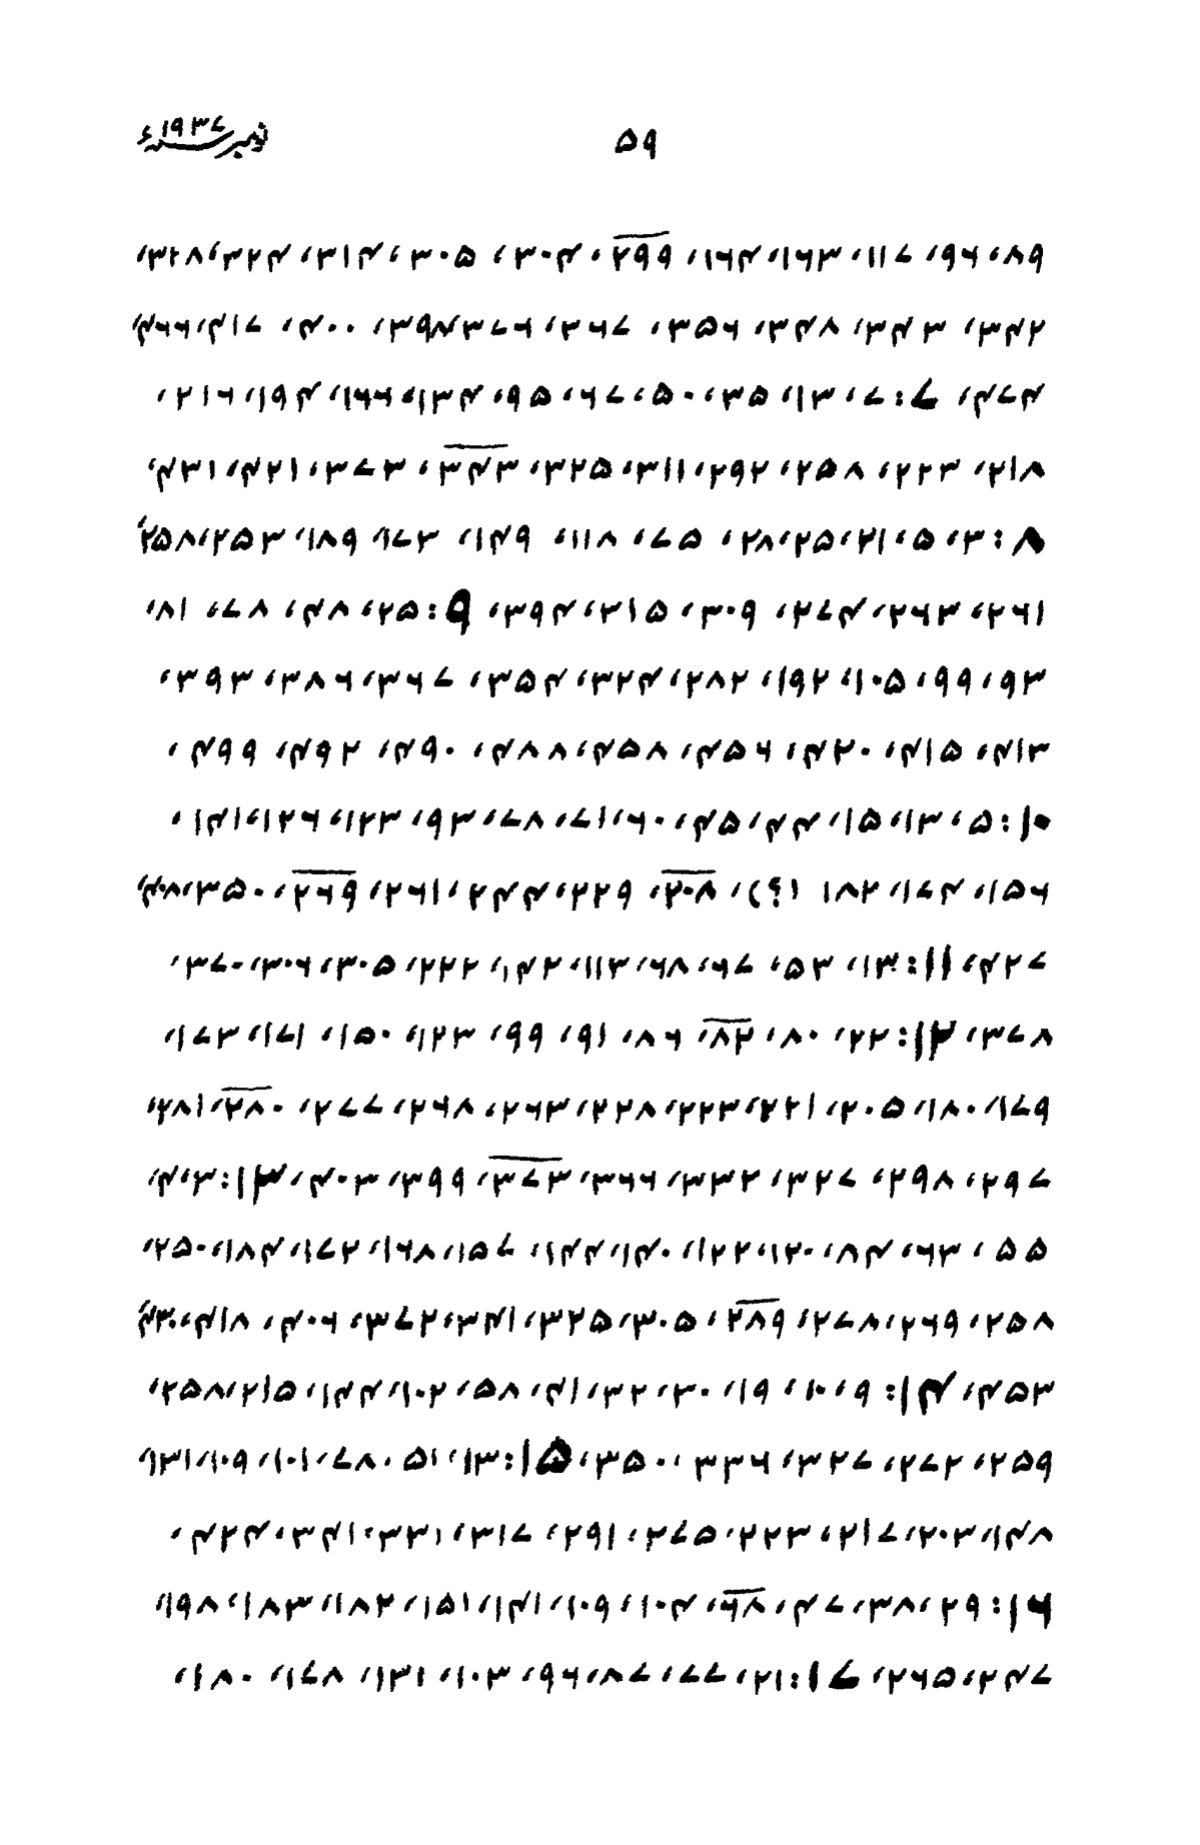 ۵۹
نومبر سنہ ۱۹۳۷ء
۸۹، ۹۶، ۱۱۷، ۱۶۳، ۱۶۴، ۲۹۹، ۳۰۴، ۳۰۵، ۳۱۴، ۳۲۴، ۳۲۸،
۳۴۲، ۳۴۳، ۳۴۸، ۳۵۶، ۳۶۷، ۳۷۶، ۳۹۸، ۴۰۰، ۴۱۷، ۴۶۶،
۴۷۴، ۷: ۷، ۱۳، ۳۵، ۵۰، ۶۷، ۹۵، ۱۳۴، ۱۶۶، ۱۹۴، ۲۱۶،
۲۱۸، ۲۲۳، ۲۵۸، ۲۹۲، ۳۱۱، ۳۲۵، ۳۴۳، ۳۷۳، ۴۲۱، ۴۳۱،
۸: ۳، ۵، ۲۱، ۲۵، ۲۸، ۷۵، ۱۱۸، ۱۴۹، ۱۷۳، ۱۸۹، ۲۵۳، ۲۵۸،
۲۶۱، ۲۶۳، ۲۷۴، ۳۰۹، ۳۱۵، ۳۹۴، ۹: ۲۵، ۴۸، ۷۸، ۸۱،
۹۳، ۹۹، ۱۰۵، ۱۹۲، ۲۸۲، ۳۲۴، ۳۵۴، ۳۶۷، ۳۸۶، ۳۹۳،
۴۱۳، ۴۱۵، ۴۲۰، ۴۵۶، ۴۵۸، ۴۸۸، ۴۹۰، ۴۹۲، ۴۹۹،
۱۰: ۵، ۱۳، ۱۵، ۴۴، ۴۵، ۶۰، ۷۱، ۷۸، ۹۳، ۱۲۳، ۱۲۶، ۱۴۱،
۱۵۶، ۱۷۴، ۱۸۲ (؟)، ۲۰۸، ۲۲۹، ۲۴۴، ۲۶۱، ۲۶۹، ۳۵۰، ۴۰۸،
۴۲۷، ۱۱: ۱۳، ۵۳، ۶۷، ۶۸، ۱۱۳، ۱۴۲، ۲۲۲، ۳۰۵، ۳۰۶، ۳۷۰،
۳۷۸، ۱۲: ۲۲، ۸۰، ۸۲، ۸۶، ۹۱، ۹۹، ۱۲۳، ۱۵۰، ۱۷۱، ۱۷۳،
۱۷۹، ۱۸۰، ۲۰۵، ۲۲۱، ۲۲۳، ۲۲۸، ۲۶۳، ۲۶۸، ۲۷۷، ۲۸۰، ۲۸۱،
۲۹۷، ۲۹۸، ۳۲۷، ۳۳۲، ۳۶۶، ۳۷۳، ۳۹۹، ۴۰۳، ۱۳: ۳، ۴،
۵۵، ۶۳، ۸۴، ۱۲۰، ۱۲۲، ۱۴۰، ۱۴۴، ۱۵۷، ۱۶۸، ۱۷۲، ۱۸۴، ۲۵۰،
۲۵۸، ۲۶۹، ۲۷۸، ۲۸۹، ۳۰۵، ۳۲۵، ۳۴۱، ۳۷۲، ۴۰۶، ۴۱۸، ۴۳۰،
۴۵۳، ۱۴: ۹، ۱۰، ۱۹، ۳۰، ۳۲، ۴۱، ۵۸، ۱۰۲، ۱۴۴، ۲۱۵، ۲۵۸،
۲۵۹، ۲۷۲، ۳۲۷، ۳۳۶، ۳۵۰، ۱۵: ۱۳، ۵۱، ۷۸، ۱۰۱، ۱۰۹، ۱۳۱،
۱۴۸، ۲۰۳، ۲۱۷، ۲۲۳، ۲۷۵، ۲۹۱، ۳۱۷، ۳۳۱، ۳۴۱، ۴۲۴،
۱۶: ۲۹، ۳۸، ۴۷، ۶۸، ۱۰۴، ۱۰۹، ۱۴۱، ۱۵۱، ۱۸۲، ۱۸۳، ۱۹۸،
۲۴۷، ۲۶۵، ۱۷: ۲۱، ۷۷، ۸۷، ۹۶، ۱۰۳، ۱۳۱، ۱۷۸، ۱۸۰،